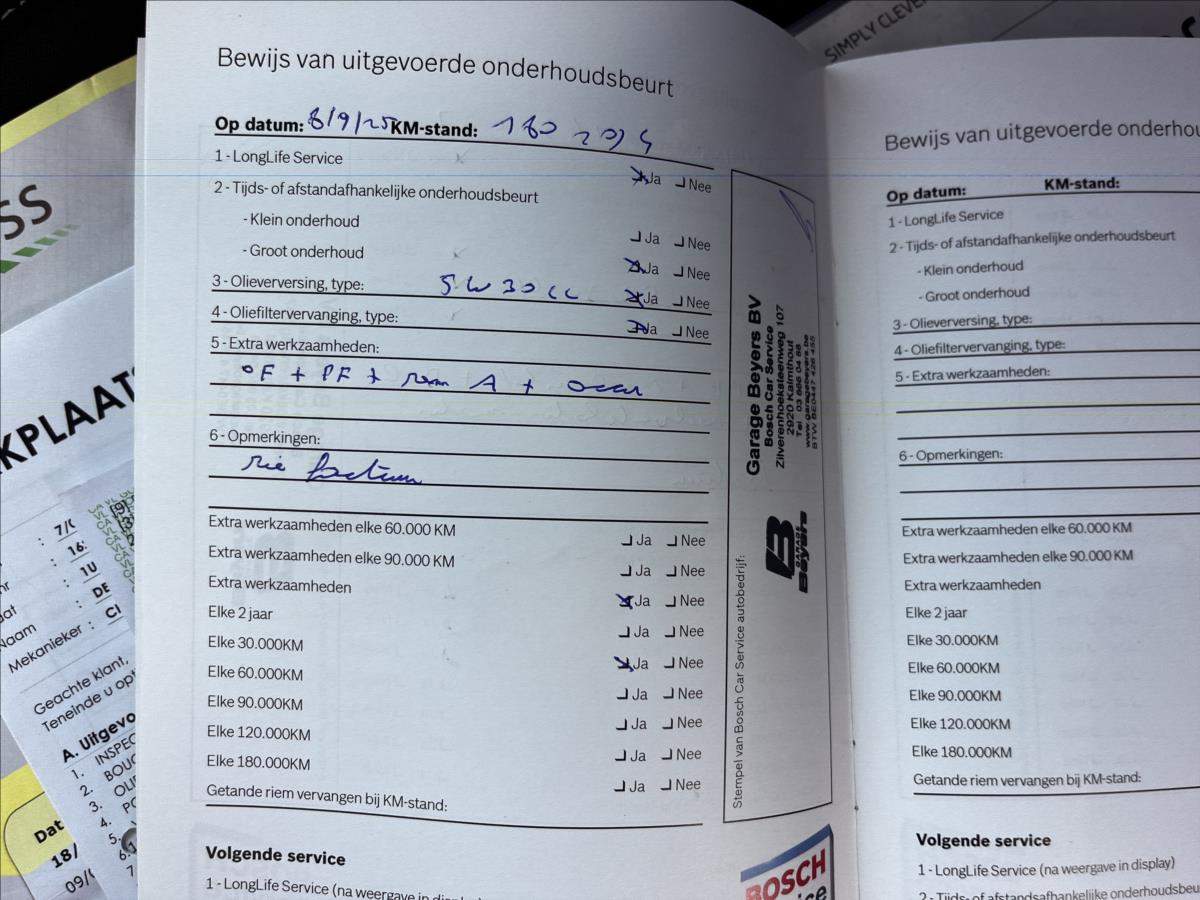 SIMPLY CLEVER
SS
KPLAAT
: 7/0
: 16:
: 1U
Naam : DE
Mekanieker : CI
Geachte klant,
Teneinde u op
A. Uitgevo
1. INSPEC
2. BOUG
3. OLI
4. PO
5.
6.
7
Dat
18/
09/
Bewijs van uitgevoerde onderhoudsbeurt
Op datum: 8/9/25 KM-stand:
1 - LongLife Service Ja Nee
2 - Tijds- of afstandafhankelijke onderhoudsbeurt
- Klein onderhoud Ja Nee
- Groot onderhoud Ja Nee
3 - Olieverversing, type: 5W30 LL Ja Nee
4 - Oliefiltervervanging, type: Ja Nee
5 - Extra werkzaamheden:
OF + PF + + 
6 - Opmerkingen:
zie factuur
Extra werkzaamheden elke 60.000 KM Ja Nee
Extra werkzaamheden elke 90.000 KM Ja Nee
Extra werkzaamheden Ja Nee
Elke 2 jaar Ja Nee
Elke 30.000KM Ja Nee
Elke 60.000KM Ja Nee
Elke 90.000KM Ja Nee
Elke 120.000KM Ja Nee
Elke 180.000KM Ja Nee
Getande riem vervangen bij KM-stand:
Volgende service
1 - LongLife Service (na weergave in display)
Stempel van Bosch Car Service autobedrijf:
GARAGE
Beyers
Garage Beyers BV
Bosch Car Service
Zilverenhoeksteenweg 107
2920 Kalmthout
Tel : 03 666 04 88
www.garagebeyers.be
BTW BE0447 426 455
BOSCH
Bewijs van uitgevoerde onderho
Op datum: KM-stand:
1 - LongLife Service
2 - Tijds- of afstandafhankelijke onderhoudsbeurt
- Klein onderhoud
- Groot onderhoud
3 - Olieverversing, type:
4 - Oliefiltervervanging, type:
5 - Extra werkzaamheden:
6 - Opmerkingen:
Extra werkzaamheden elke 60.000 KM
Extra werkzaamheden elke 90.000 KM
Extra werkzaamheden
Elke 2 jaar
Elke 30.000KM
Elke 60.000KM
Elke 90.000KM
Elke 120.000KM
Elke 180.000KM
Getande riem vervangen bij KM-stand:
Volgende service
1 - LongLife Service (na weergave in display)
2 - Tijds- of afstandsafhankelijke onderhoudsbeu